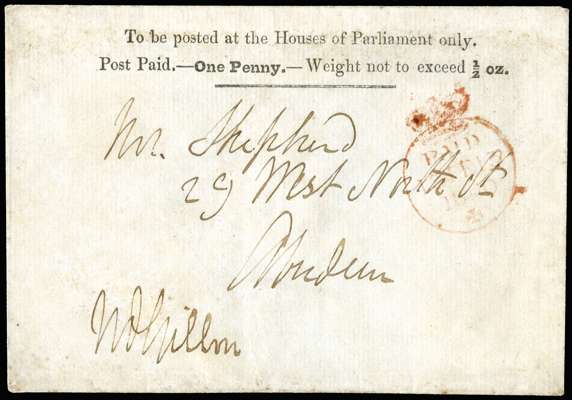 To be posted at the Houses of Parliament only.
Post Paid.—One Penny.—Weight not to exceed ½ oz.
PAID
Mr. Shepherd
29 West North St
Aberdeen